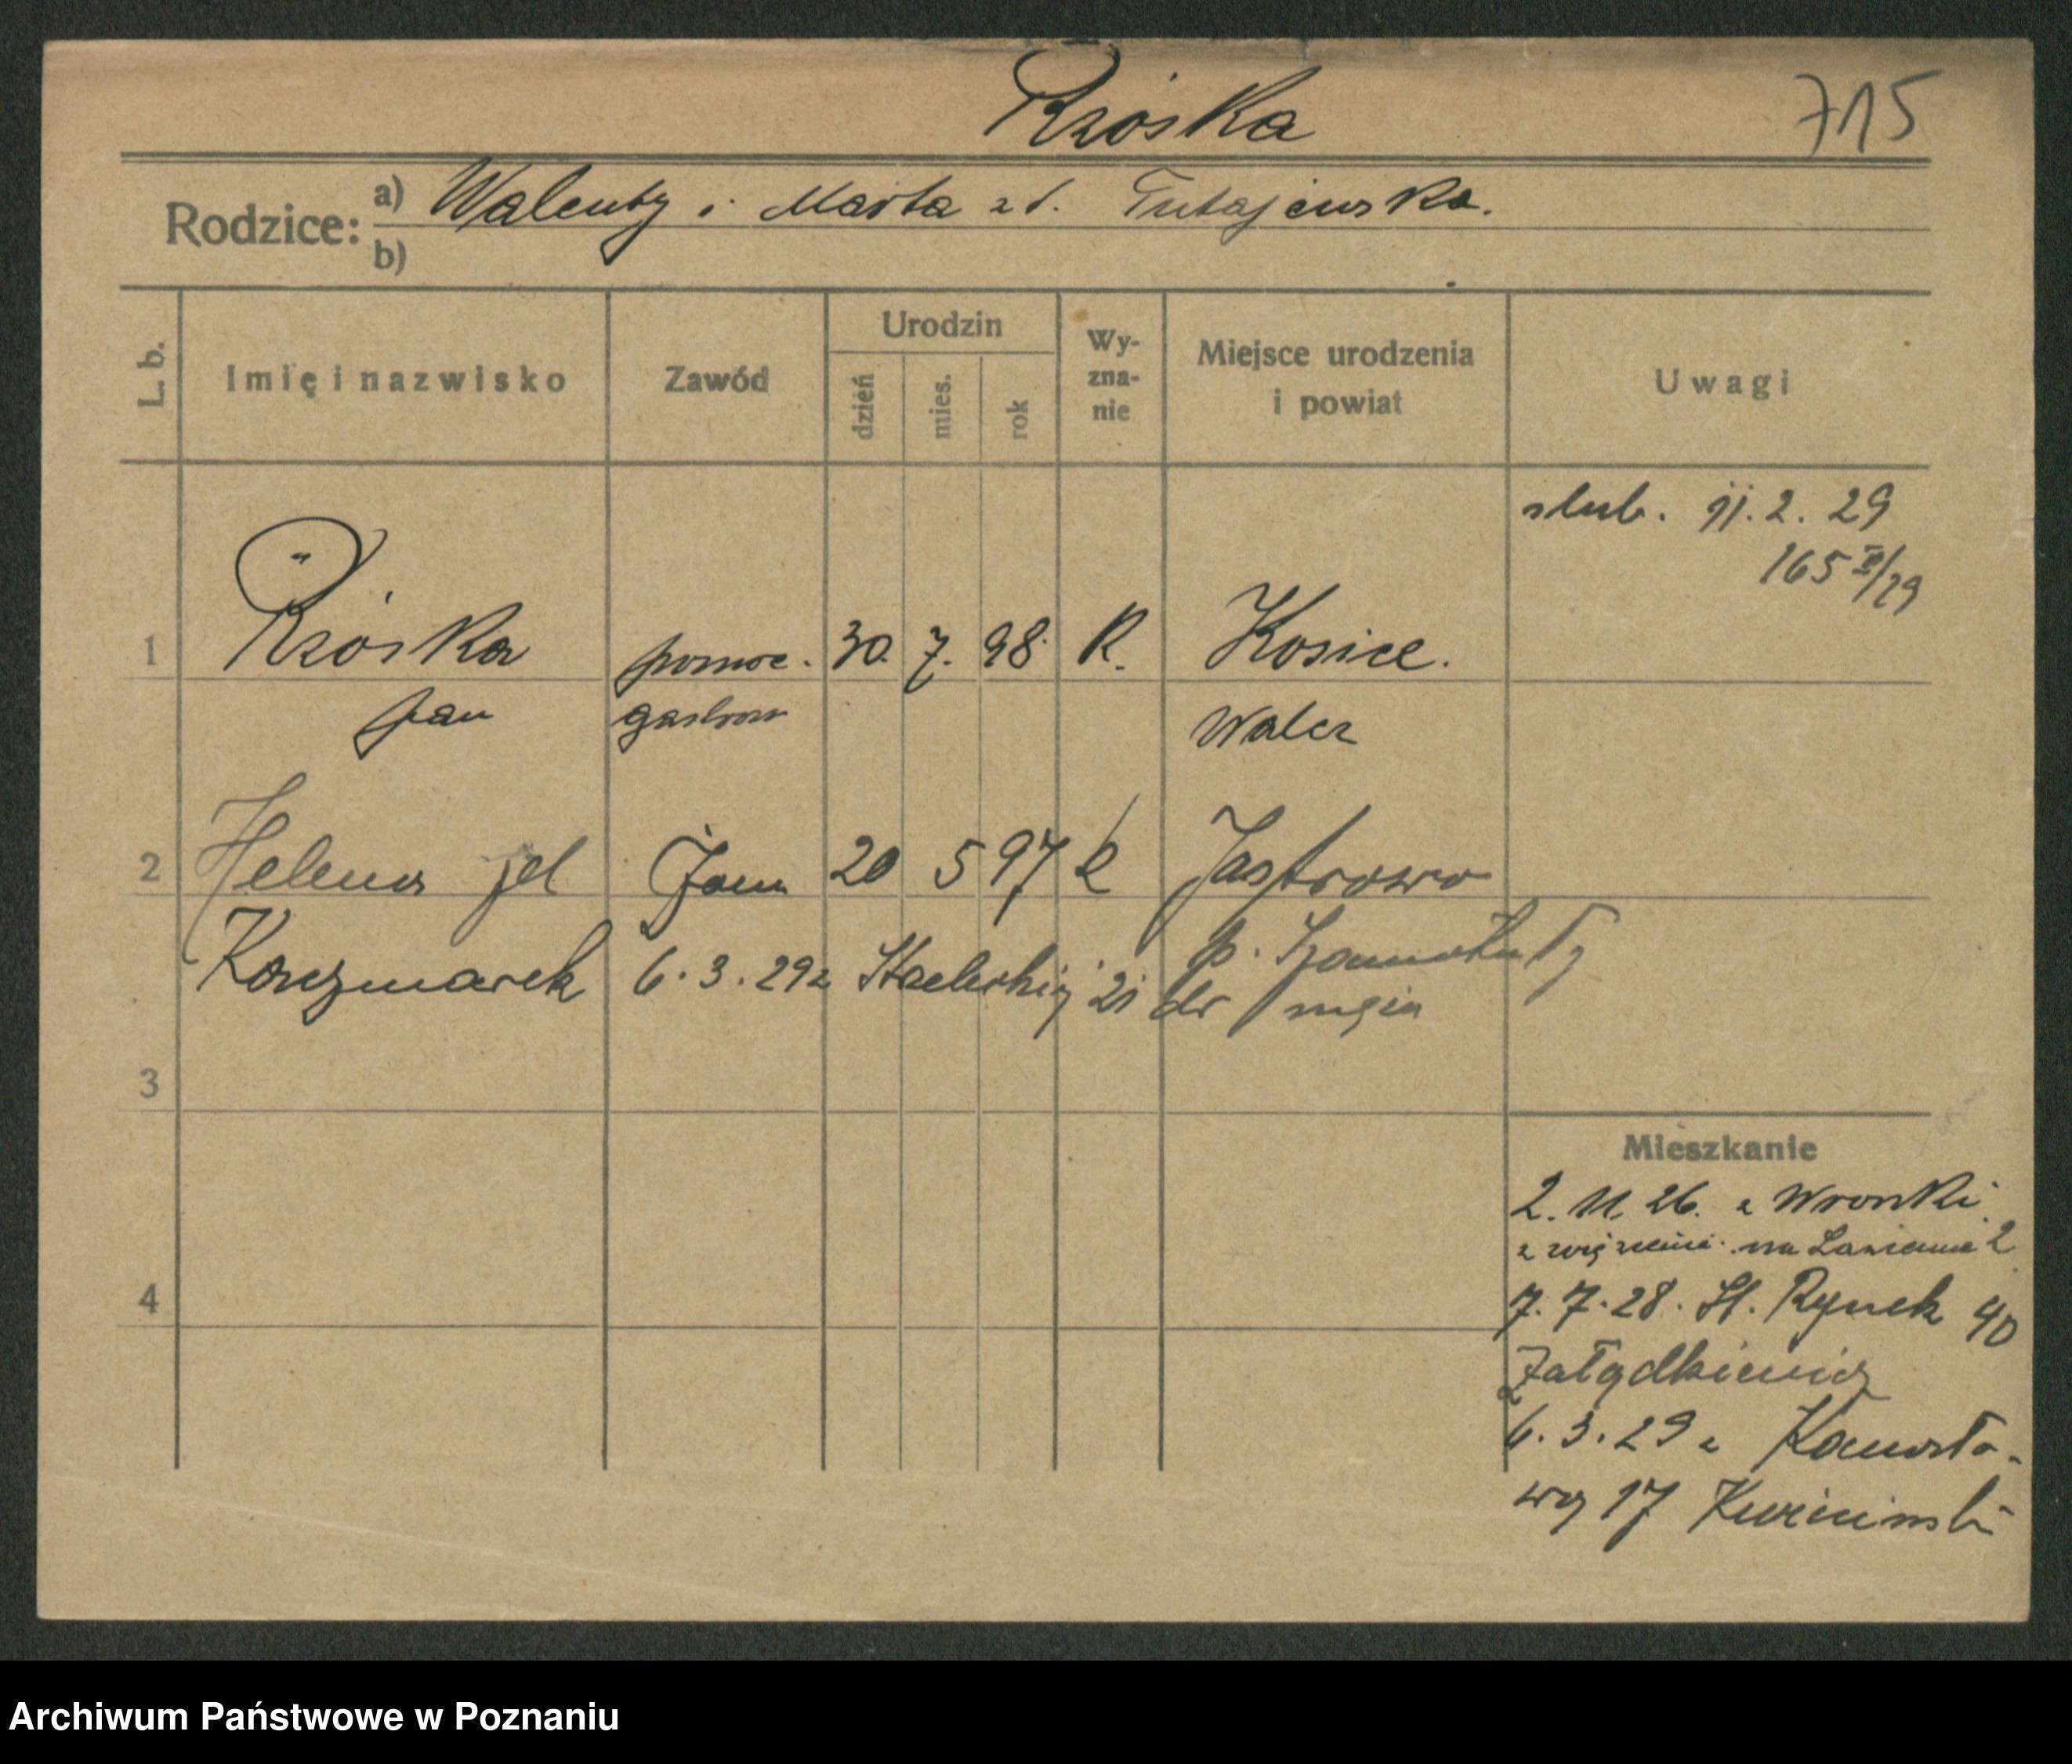 Rzóska
715
Rodzice: a) Walenty i Marta zd. Tutajewska.
b)
L. b. Imię i nazwisko Zawód Urodzin dzień mies. rok Wyznanie Miejsce urodzenia i powiat Uwagi
ślub. 11.2.29
165 II/29
1 Rzóska pomoc. 30. 7. 98. R. Kosice.
Jan gastron Walcz
2 Helena żona 20 5 97 Jastrowo
Kaczmarek p. Szamotuły
6.3.29 z Strzeleckiej 21 do męża
3
Mieszkanie
2.11.26. z Wronki
z więzienia na Łazienna 2
4
7.7.28. St. Rynek 40
6.3.29 z
17
Archiwum Państwowe w Poznaniu